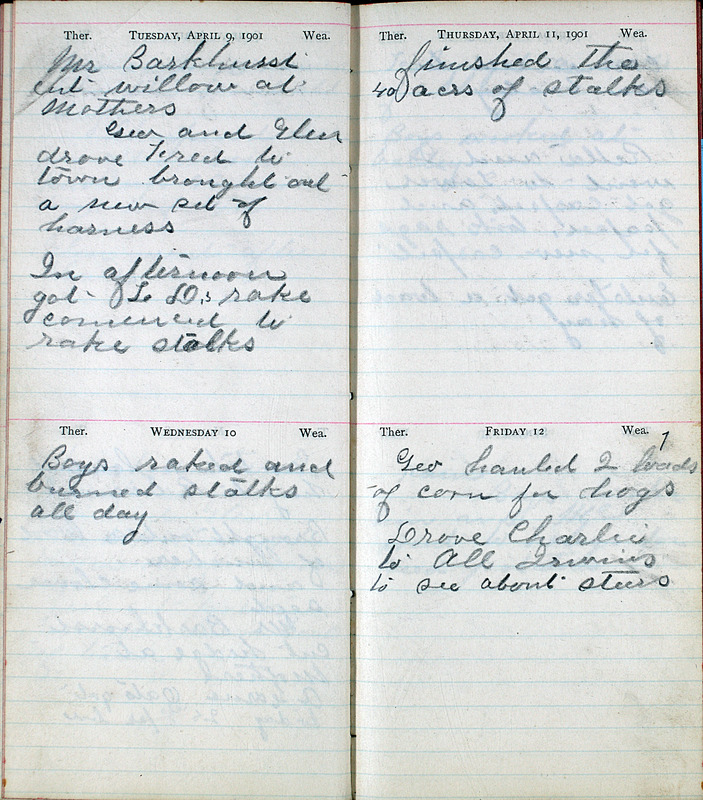 Ther. TUESDAY, APRIL 9, 1901 Wea.
Mr Barkhusst
cut willow at
Mothers
Geo and Glen
drove Fred to
town brought out
a new set of
harness
In afternoon
got L D,s rake
comenced to
rake stalks
Ther. WEDNESDAY 10 Wea.
Boys raked and
burned stalks
all day
Ther. THURSDAY, APRIL 11, 1901 Wea.
finished the
40 acrs of stalks
Ther. FRIDAY 12 Wea.
Geo hauled 2 loads
of corn for hogs
Drove Charlie
to All Irwins
to see about steers